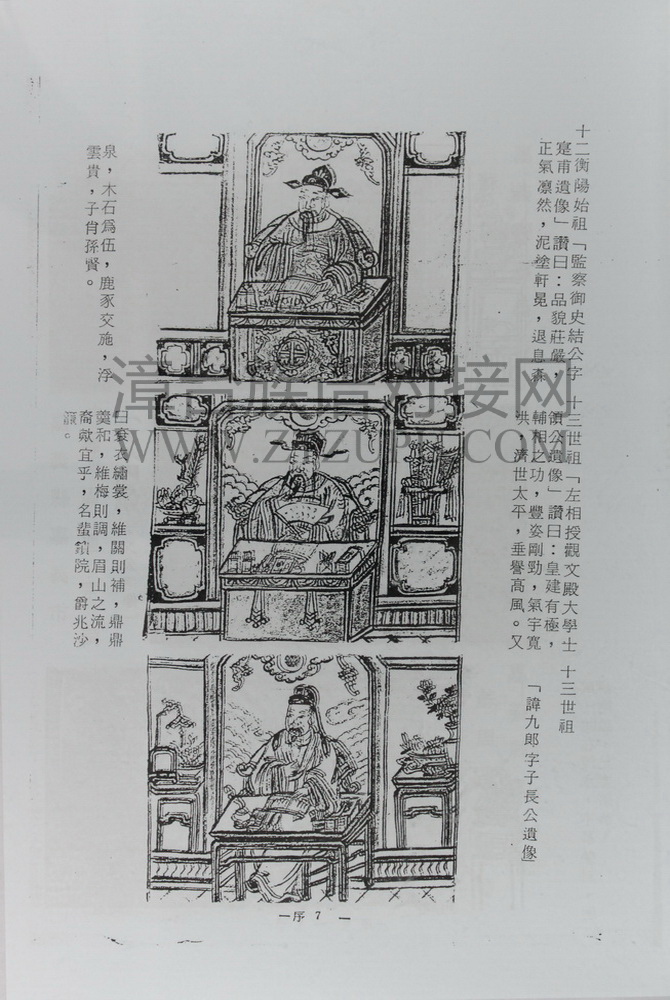 十二衡陽始祖「監察御史結公字
寔甫遺像」讚曰：品貌莊嚴，
正氣凛然，泥塗軒冕，退息森
泉，木石爲伍，鹿豕交施，浮
雲貴，子肖孫賢。
十三世祖「左相授觀文殿大學士
領公遺像」讚曰：皇建有極，
輔相之功，豐姿剛勁，氣宇寬
洪，濟世太平，垂譽高風。又
曰袞衣繡裳，維闕則補，鼎鼎
羹和，維梅則調，眉山之流，
裔歟宜乎，名蜚鎖院，爵兆沙
十三世祖
「諱九郎字子長公遺像」
漳台族谱对接网
WWW.ZTZUPU.COM
一序 7 一